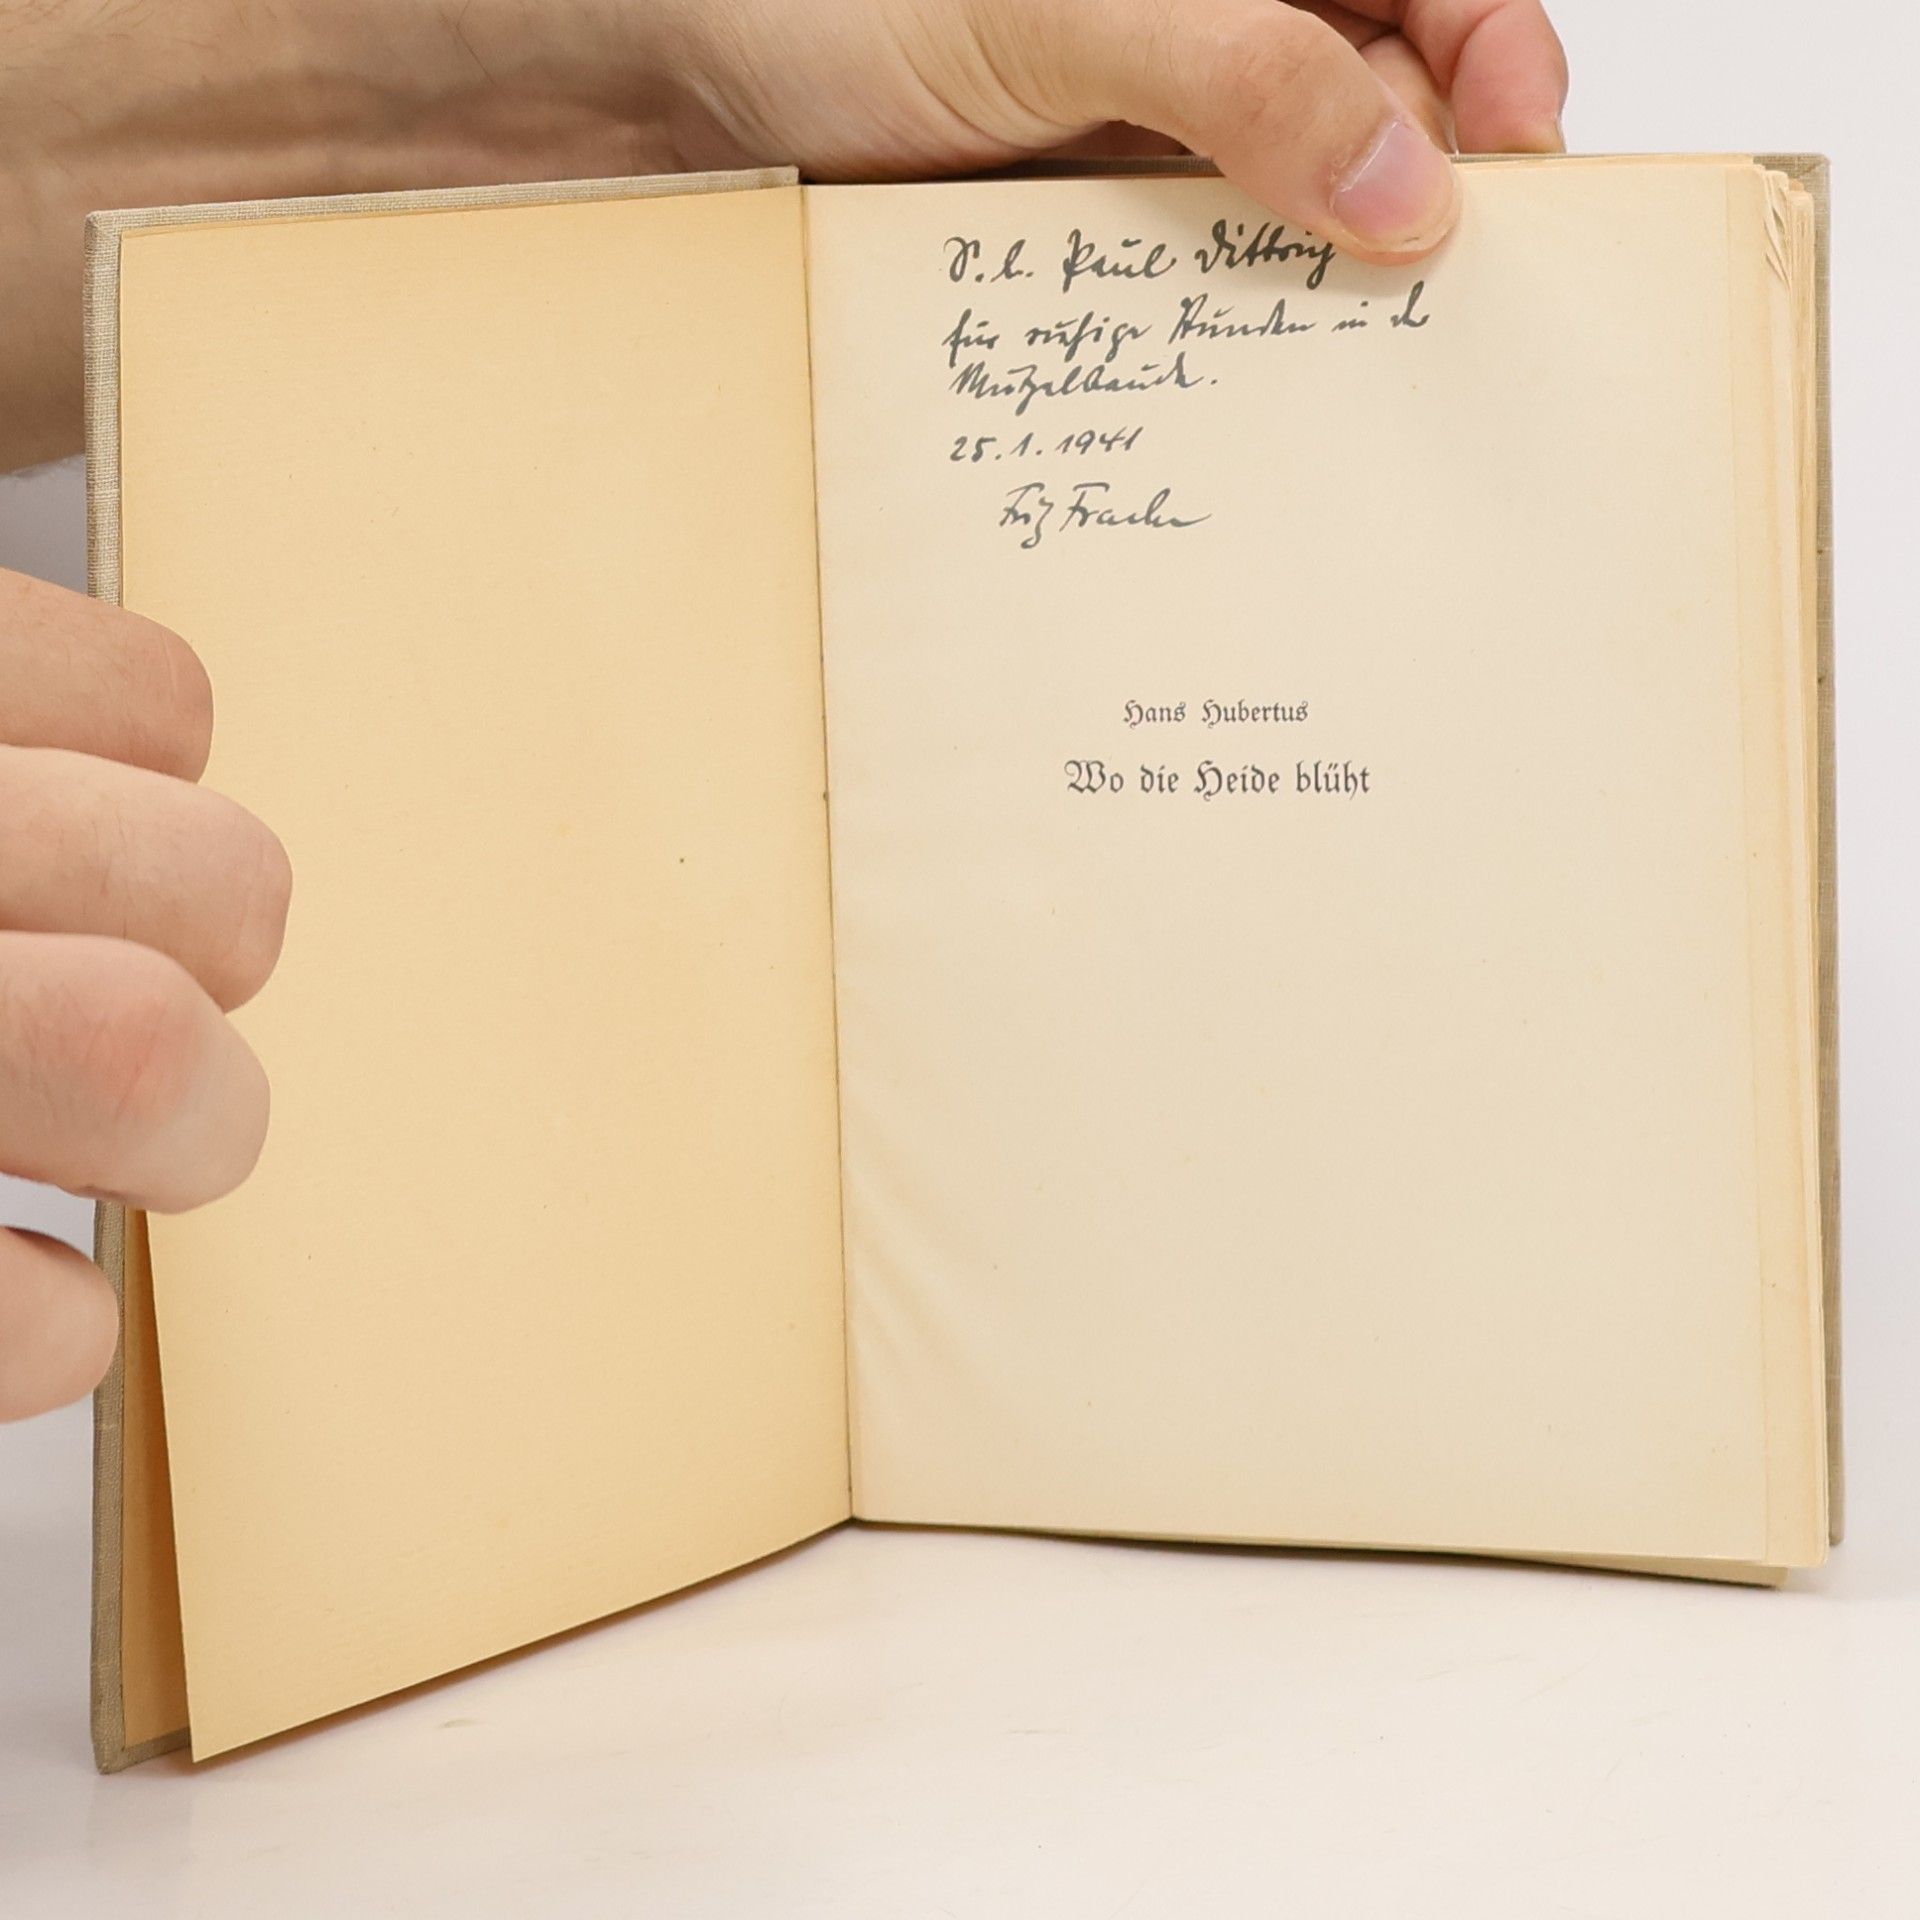 S. l. Paul Dittrich
für ruhige Stunden in der
Mutzelbaude.
25.1.1941
Fritz
Hans Hubertus
Wo die Heide blüht